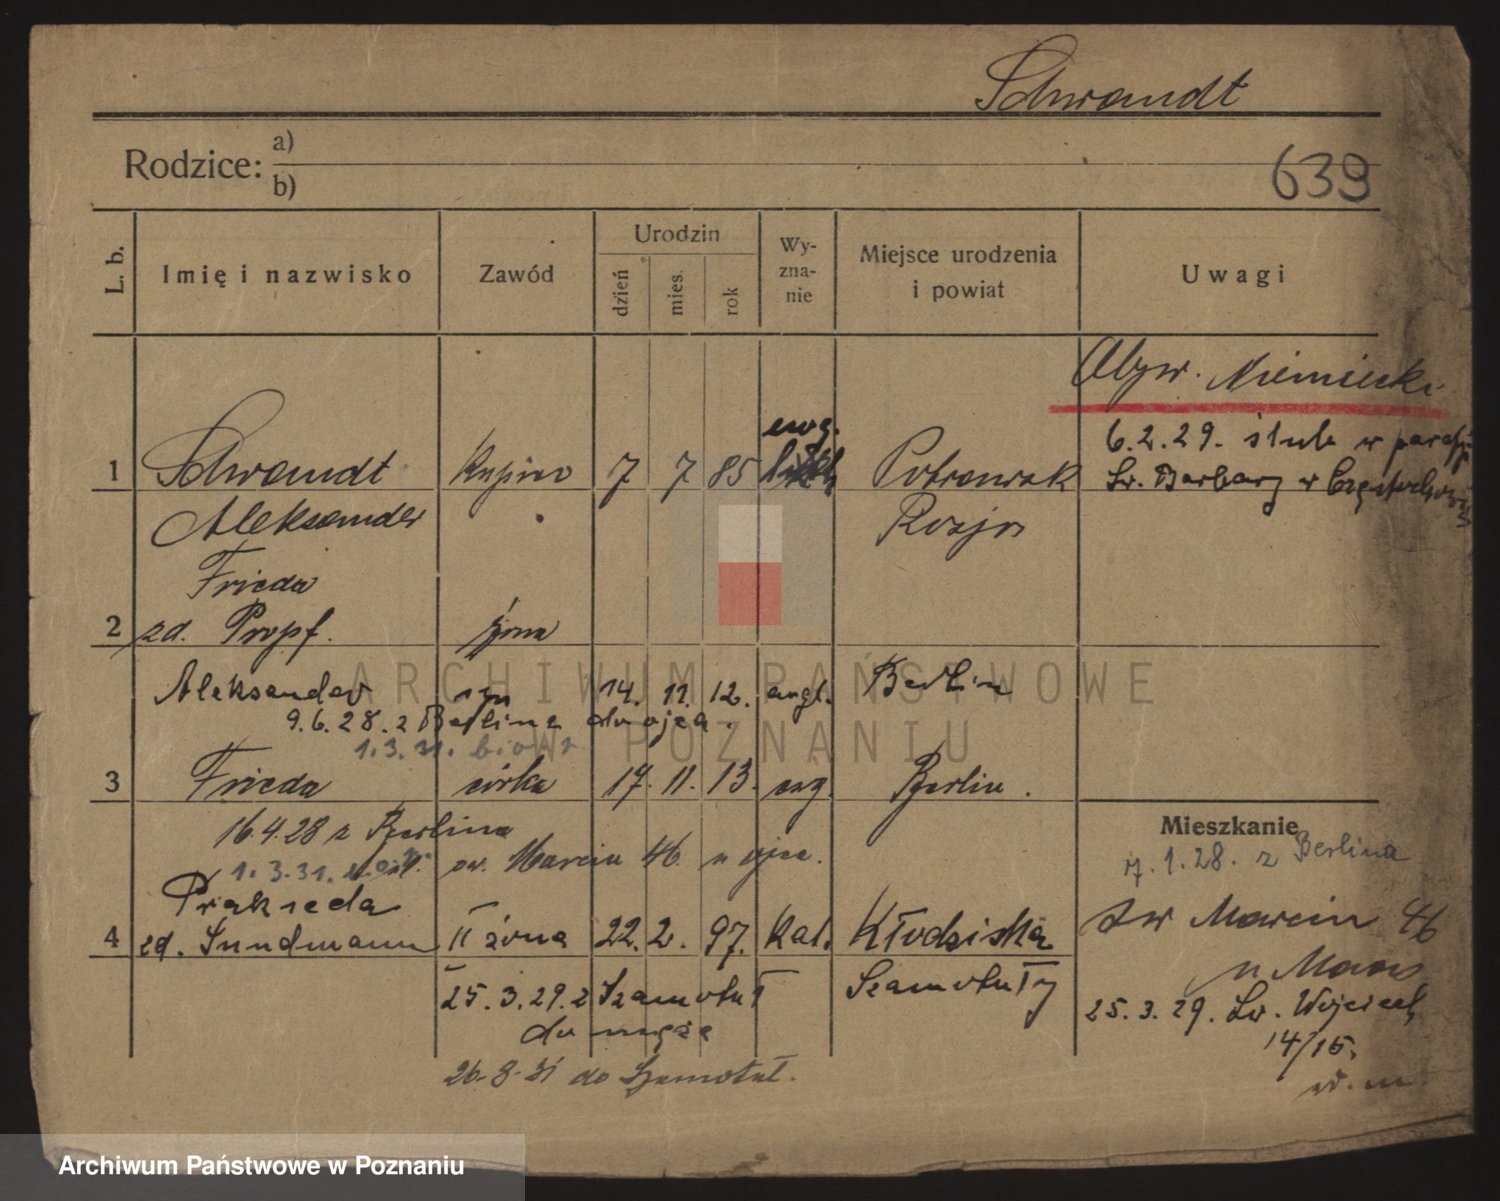 Schwandt
Rodzice: a)
b)
639
L. b.
Imię i nazwisko
Zawód
Urodzin
dzień
mies.
rok
Wy-
zna-
nie
Miejsce urodzenia
i powiat
Uwagi
Obyw. Niemiecki
6.2.29. ślub w parafji
Św. Barbary w Częstochowie
ewg.
1 Schwandt Kupiec 7 7 85
Aleksander Rosja
Frieda
2 zd. Propf. żona
Aleksander syn 14. 11. 12. Berlin
9.6.28. z Berlina do ojca.
1.3.31.
3 Frieda córka 17. 11. 13. ewg. Berlin.
16.4.28 z Berlina
św. Marcin 46 u ojca.
1.3.31.
Prakseda
4 zd. Sundmann II żona 22. 2. 97. Kat. Kłodziska
Szamotuły
25.3.29. z Szamotuł
do męża
26.8.31 do Szamotuł.
Mieszkanie
7.1.28. z Berlina
św Marcin 46
25.3.29. Św. Wojciech
14/15.
ARCHIWUM PAŃSTWOWE
W POZNANIU
Archiwum Państwowe w Poznaniu